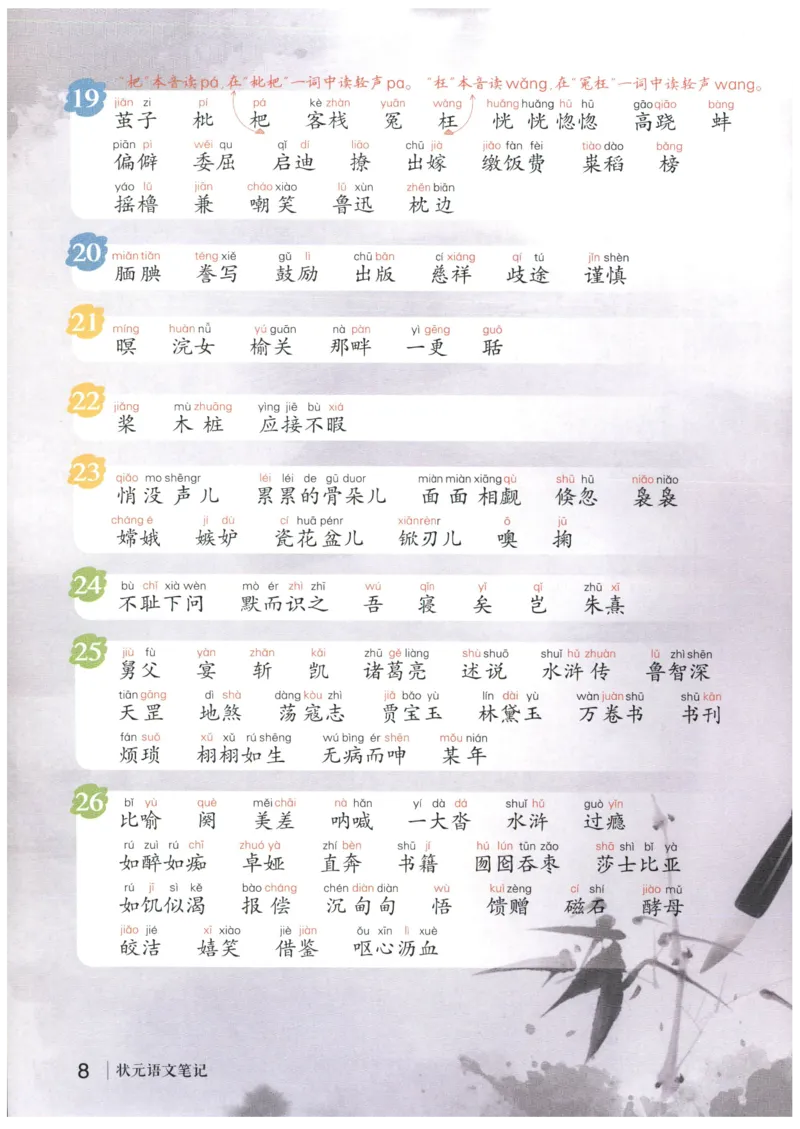 “杷”本音读pá,在“枇杷”一词中读轻声pa。 “枉”本音读wǎng,在“冤枉”一词中读轻声wang。
19
jiǎn zi pí pá kè zhàn yuān wǎng huǎng huǎng hū hū gāo qiāo bàng
茧子 枇 杷 客栈 冤 枉 恍恍惚惚 高跷 蚌
piān pì wěi qu qǐ dí liáo chū jià jiǎo fàn fèi tiào dào bǎng
偏僻 委屈 启迪 撩 出嫁 缴饭费 粜稻 榜
yáo lǔ jiān cháo xiào lǔ xùn zhěn biān
摇橹 兼 嘲笑 鲁迅 枕边
20
miǎn tiǎn téng xiě gǔ lì chū bǎn cí xiáng qí tú jǐn shèn
腼腆 誊写 鼓励 出版 慈祥 歧途 谨慎
21
míng huàn nǚ yú guān nà pàn yì gēng guō
暝 浣女 榆关 那畔 一更 聒
22
jiǎng mù zhuāng yìng jiē bù xiá
桨 木桩 应接不暇
23
qiǎo mo shēngr léi léi de gū duor miàn miàn xiāng qù shū hū niǎo niǎo
悄没声儿 累累的骨朵儿 面面相觑 倏忽 袅袅
cháng é jí dù cí huā pénr xiānrènr ō jū
嫦娥 嫉妒 瓷花盆儿 锨刃儿 噢 掬
24
bù chǐ xià wèn mò ér zhì zhī wú qǐn yǐ qǐ zhū xī
不耻下问 默而识之 吾 寝 矣 岂 朱熹
25
jiù fù yàn zhǎn kǎi zhū gě liàng shù shuō shuǐ hǔ zhuàn lǔ zhì shēn
舅父 宴 斩 凯 诸葛亮 述说 水浒传 鲁智深
tiān gāng dì shà dàng kòu zhì jiǎ bǎo yù lín dài yù wàn juàn shū shū kān
天罡 地煞 荡寇志 贾宝玉 林黛玉 万卷书 书刊
fán suǒ xǔ xǔ rú shēng wú bìng ér shēn mǒu nián
烦琐 栩栩如生 无病而呻 某年
26
bǐ yù quē měi chāi nà hǎn yí dà dá shuǐ hǔ guò yǐn
比喻 阙 美差 呐喊 一大沓 水浒 过瘾
rú zuì rú chī zhuó yà zhí bèn shū jí hú lún tūn zǎo shā shì bǐ yà
如醉如痴 卓娅 直奔 书籍 囫囵吞枣 莎士比亚
rú jī sì kě bào cháng chén diàn diàn wù kuì zèng cí shí jiào mǔ
如饥似渴 报偿 沉甸甸 悟 馈赠 磁石 酵母
jiǎo jié xī xiào jiè jiàn ǒu xīn lì xuè
皎洁 嬉笑 借鉴 呕心沥血
8 状元语文笔记